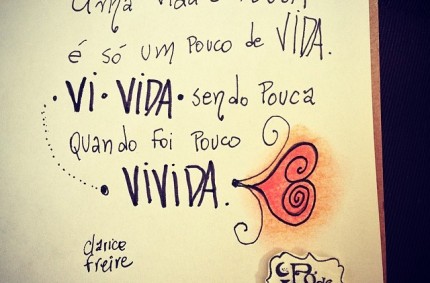 Uma vida
é só um pouco de VIDA.
• VI • VIDA • sendo pouca
Quando foi pouco
VIVIDA.
clarice
freire
Pó de